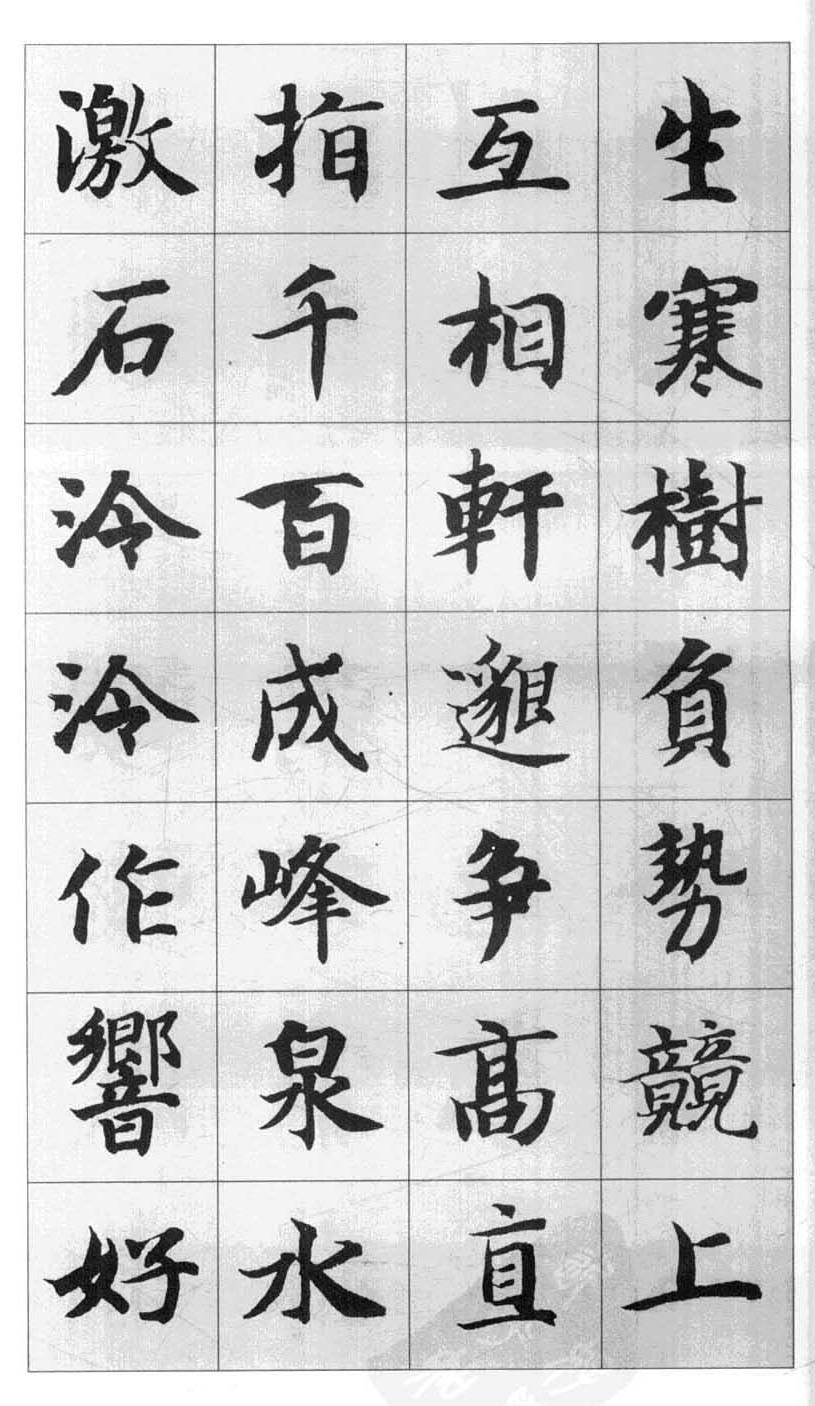 生寒樹負勢競上
互相軒邈争高直
指千百成峰泉水
激石泠泠作響好